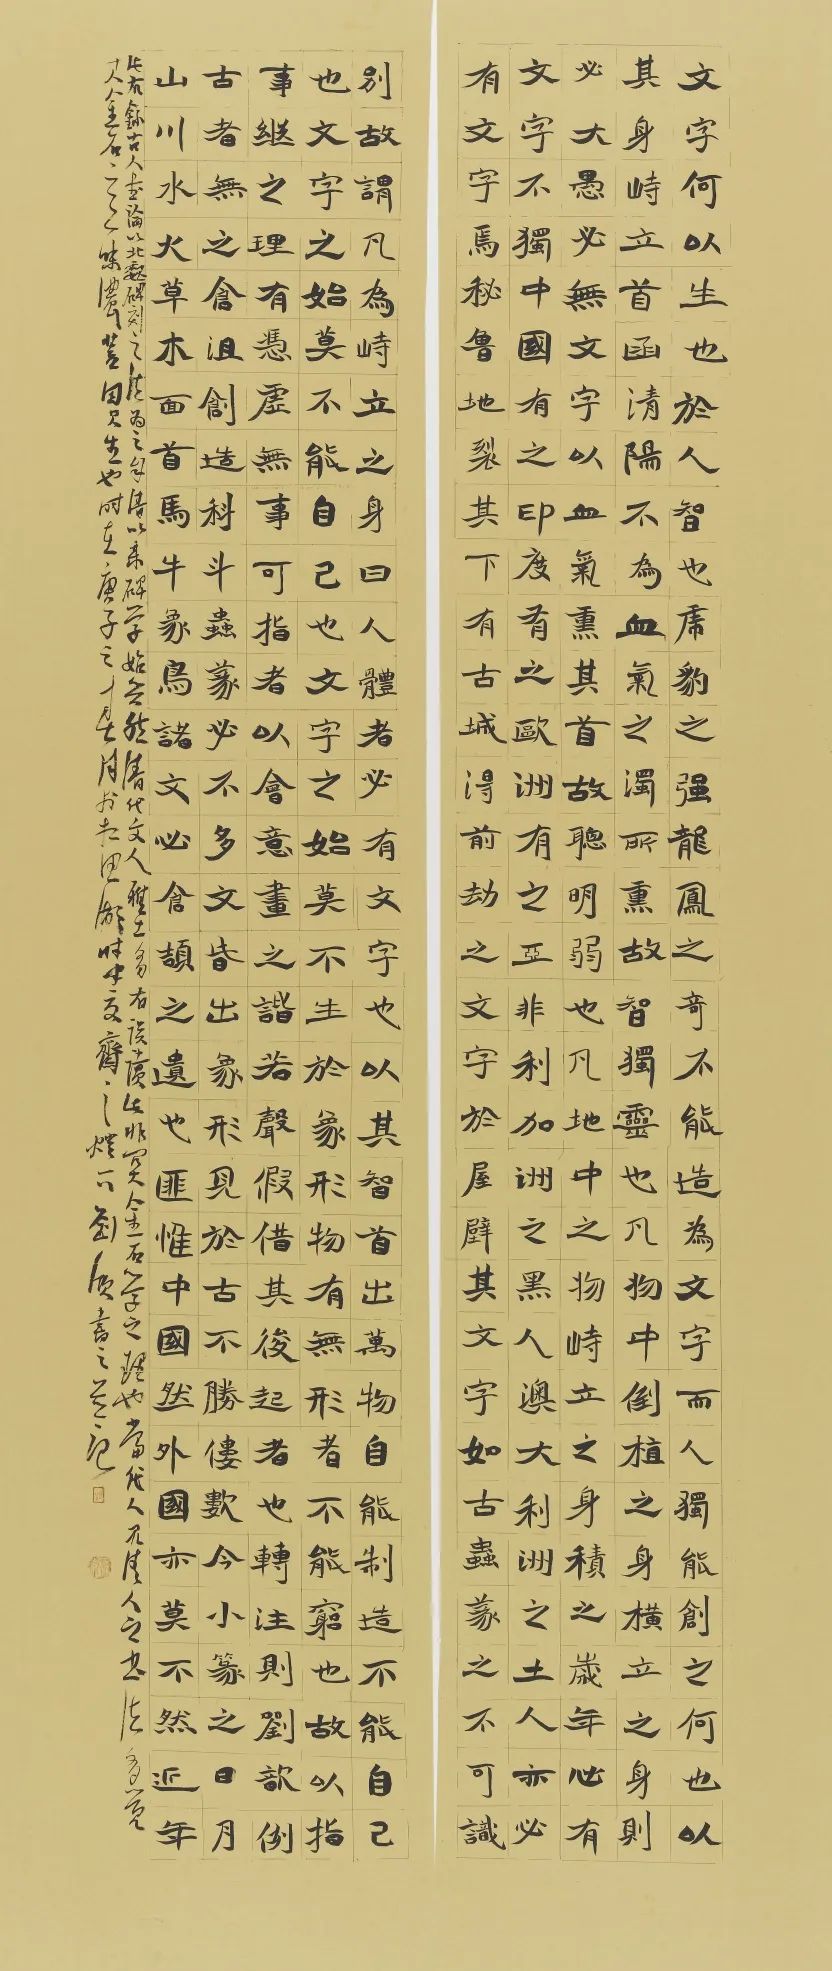 文字何以生也於人智也虎豹之强龍鳳之奇不能造為文字而人獨能創之何也以
其身峙立首函清陽不為血氣之濁所熏故智獨靈也凡物中倒植之身橫立之身則
必大愚必無文字以血氣熏其首故聰明弱也凡地中之物峙立之身積之歲年必有
文字不獨中國有之印度有之歐洲有之亞非利加洲之黑人澳大利洲之土人亦必
有文字焉秘魯地裂其下有古城得前劫之文字於屋壁其文字如古蟲篆之不可識
别故謂凡為峙立之身曰人體者必有文字也以其智首出萬物自能制造不能自己
也文字之始莫不能自己也文字之始莫不生於象形物有無形者不能窮也故以指
事繼之理有憑虛無事可指者以會意畫之諧若聲假借其後起者也轉注則劉歆例
古者無之倉沮創造科斗蟲篆必不多文皆出象形見於古不勝僂數今小篆之日月
山川水火草木面首馬牛象鳥諸文必倉頡之遺也匪惟中國然外國亦莫不然近年
此右錄古人書論以北魏碑刻之法為之自清以来碑學始然清代文人雅士多有誤讀此非金石學之也當代人清人之書法多覺
人金石之味濃也時在庚子之月於時中之燈下劉書之并記